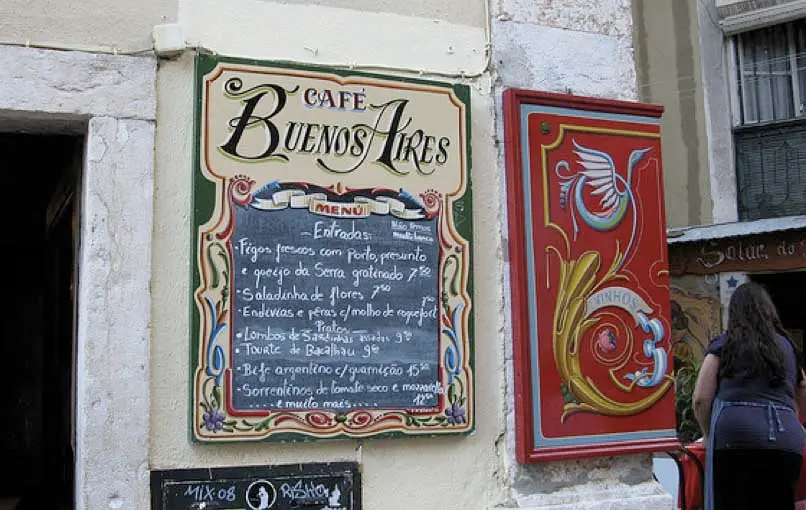 CAFÉ
BUENOS AIRES
MENÚ
Não temos
multibanco
Entradas:
Figos frescos com Porto, presunto
e queijo da Serra gratinado 7,50
Saladinha de flores 7,50
Endívias e peras c/molho de roquefort 7,50
Pratos
Lombos de Sardinhas assadas 9,50
Tourte de Bacalhau 9,50
Bife argentino c/guarnição 15,50
Sorrentinos de tomate seco e mozzarella
....e muito mais..... 12,50
VINHOS
Solar do
MIX-08